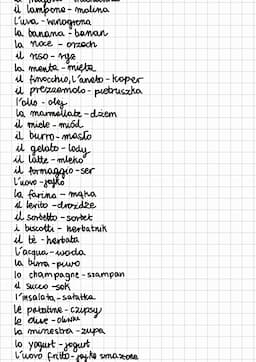 il lampone - malina
l'uva - winogrona
la banana - banan
la noce - orzech
il riso - ryż
la menta - mięta
il finocchio, l'aneto - koper
il prezzemolo - pietruszka
l'olio - olej
la marmellata - dżem
il miele - miód
il burro - masło
il gelato - lody
il latte - mleko
il formaggio - ser
l'uovo - jajko
la farina - mąka
il levito - drożdże
il sorbetto - sorbet
i biscotti - herbatnik
il tè - herbata
l'acqua - woda
la birra - piwo
lo champagne - szampan
il succo - sok
l'insalata - sałatka
le patatine - czipsy
le olive - oliwki
la minestra - zupa
lo yogurt - jogurt
l'uovo fritto - jajko smażone